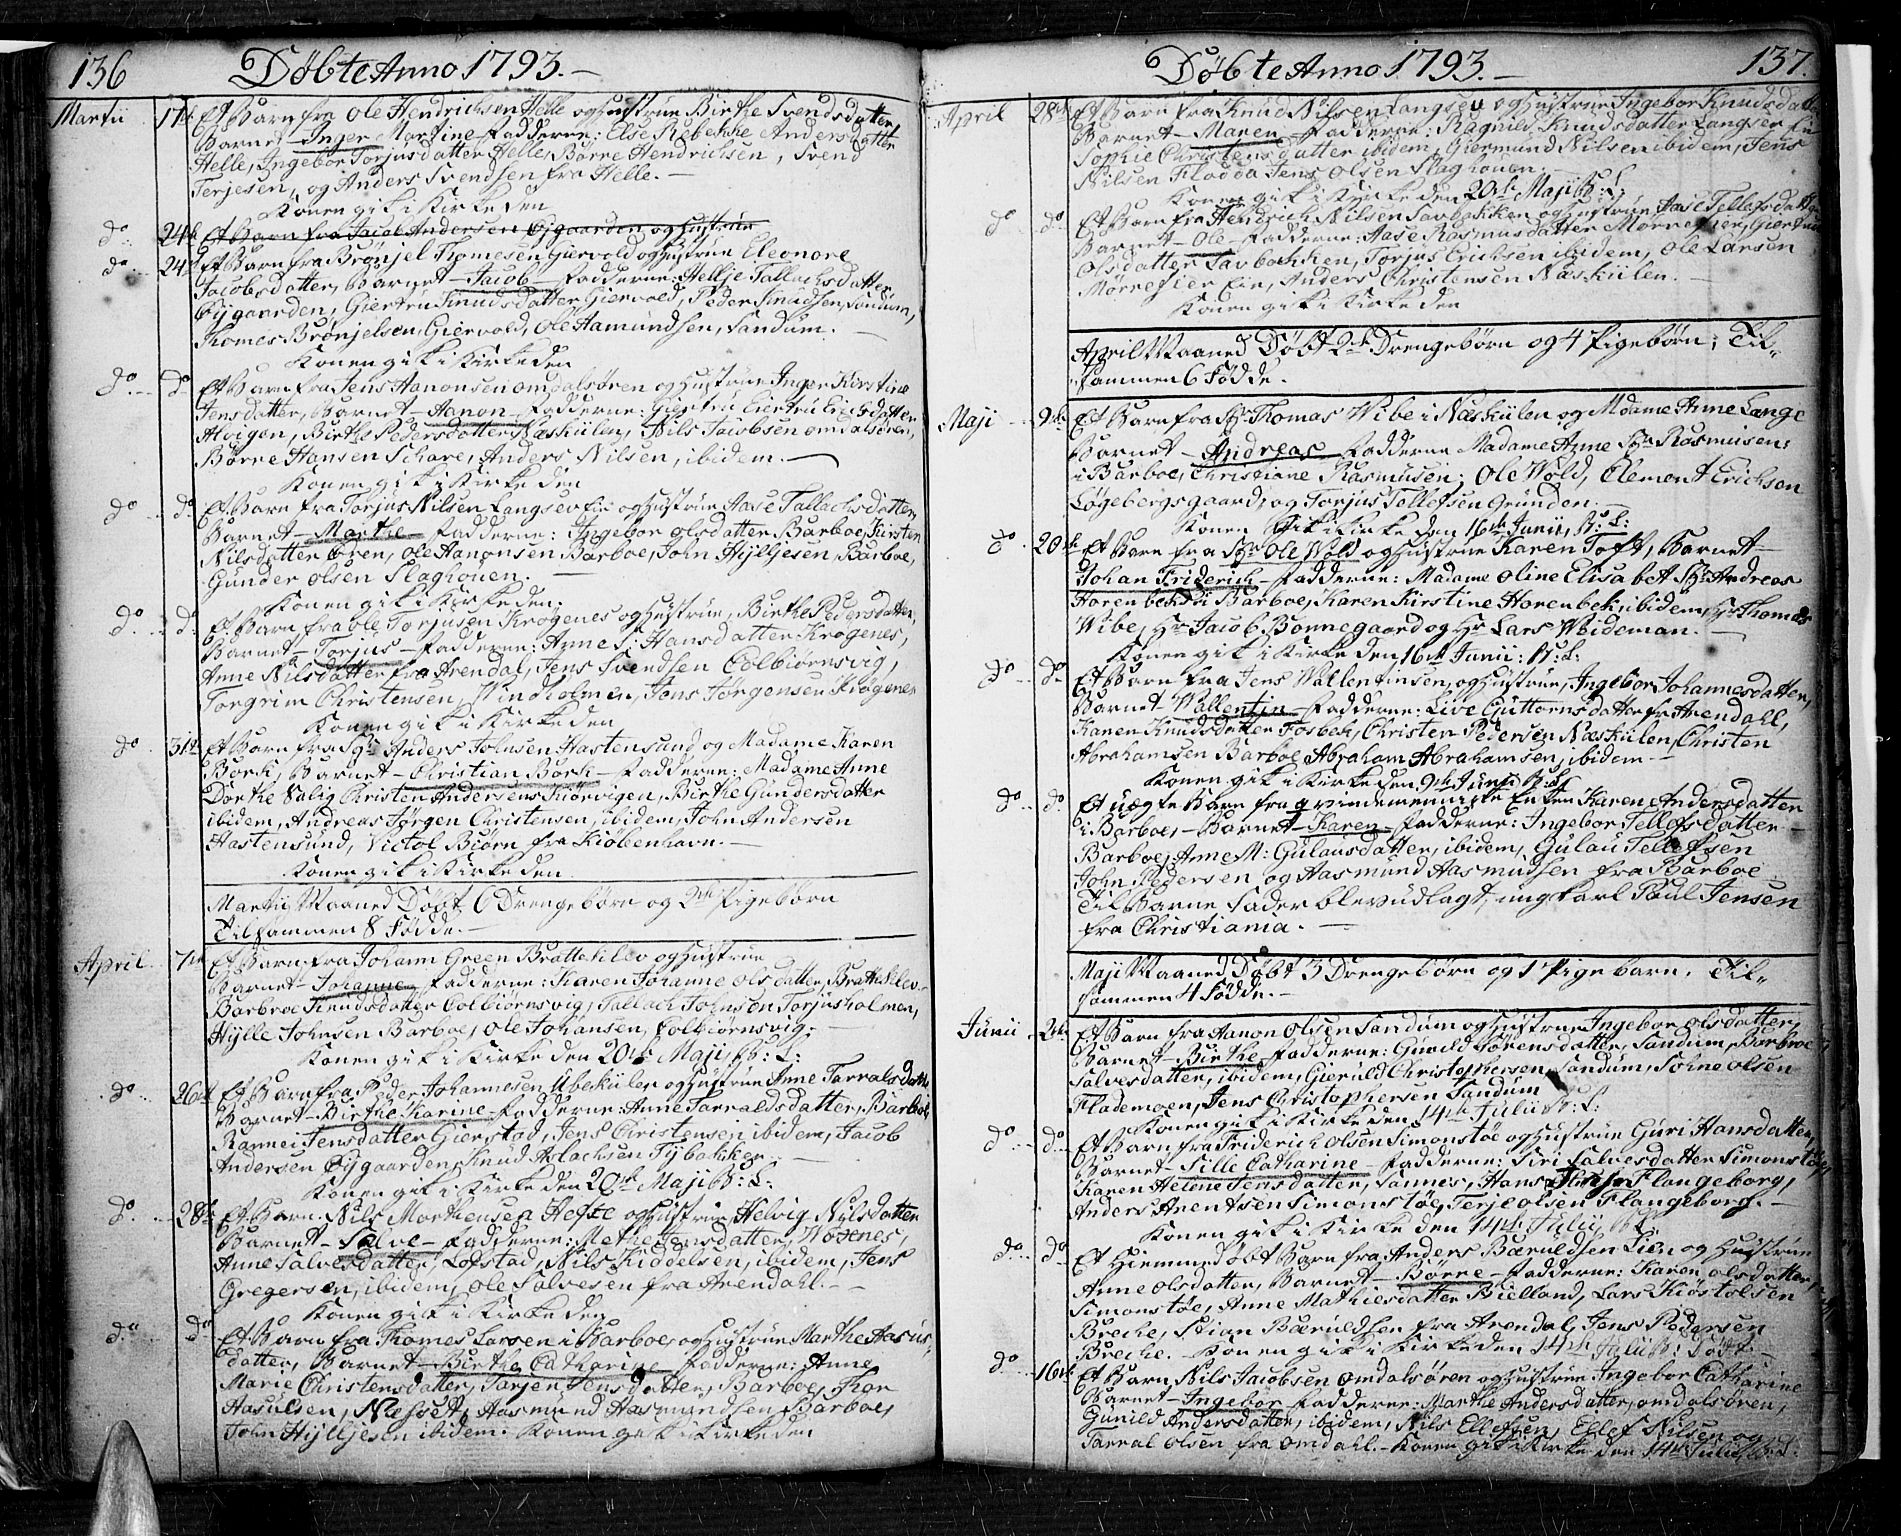 136 Døbte Anno 1793.
Martii 17de Et Barn fra Ole Hendrichsen Helle og Hustrue Birthe Svendsdatter,
Barnet Inger Martine Fadderne: Else Rebekke Andersdatter
Helle, Ingebor Torjusdatter Helle, Børre Hendrichsen, Svend
Terjesen, og Anders Svendsen fra Helle.
Konen gik i Kirke den
do 24de Et Barn fra Jacob Andersen Øygaarden og Hustrue
do 24de Et Barn fra Brønjel Thomesen Giervold og Hustrue Eleonore
Jacobsdatter, Barnet Jacob Fadderne: Hellje Tallachsdatter
Øygaarden, Giertru Knudsdatter Giervold, Peder Knudsen, Sandum,
Thomes Brønjelsen, Giervold, Ole Aamundsen, Sandum.
Konen gik i Kirke den
do do Et Barn fra Jens Aanonsen Omdalsøren og Hustrue Inger Kirstine
Jensdatter, Barnet Aanon Fadderne: Giertru Eiertru
Alvigen, Birthe Pedersdatter Næskiilen, Nils Jacobsen Omdalsøren,
Børre Hansen Schare, Anders Nilsen, ibidem.
Konen gik i Kirke den
do do Et Barn fra Torjus Nilsen Langsev Eie og Hustrue Aase Tallachsdatter,
Barnet Marthe Fadderne: Ingebor Olsdatter Barboe, Kirsten
Nilsdatter Øren, Ole Aanonsen Barboe, John Hyljesen, Barboe,
Gunder Olsen Slaghouen.
Konen gik i Kirke den:
do do Et Barn fra Ole Torjusen Krøgenes og Hustrue, Birthe Pedersdatter,
Barnet Torjus Fadderne: Anne S. Hansdatter Krøgenes,
Anne Nilsdatter fra Arendal, Jens Svendsen Colbiørnsvig,
Torgrim Christensen, Windholmen, Jens Jørgensen Krøgenes
Konen gik i Kirke den
do 31te Et Barn fra Sr. Anders Johnsen Hastensund og Madame Karen
Bork, Barnet Christian Bork Fadderne: Madame Anne
Dorthe Salig Christen Andersens Kiørvigen, Birthe Gundersdatter
ibidem, Andreas Jørgen Christensen, ibidem, John Andersen
Hastensund, Victol Biørn fra Kiøbenhavn.
Konen gik i Kirke den
Martii Maaned Døbt 6 Drengebørn og 2de Pigebørn
Tilsammen 8 Fødde.
April 7de Et Barn fra Johann Green Brattekleiv og Hustrue
Barnet Johanne Fadderne: Karen Johanne Olsdatter, Brattekleiv
Barbroe Knudsdatter Colbiørnsvig, Tallach Johnsen Torjusholmen,
Hylle Johnsen Barboe, Ole Johansen, Colbiørnsvig.
Konen gik i Kirke den 20de Maji, B: L:
do 26de Et Barn fra Peder Johannesen Ubekiilen og Hustrue Anne Tarralsdatter
Barnet Birthe Karine Fadderne: Anne Tarraldsdatter, Barboe,
Rannei Jensdatter Gierstad, Jens Christensen ibidem, Jacob
Andersen Øygaarden, Knud Aslachsen Tybakken.
Konen gik i Kirke den 20de Maji B: L:
do 28de Et Barn Nils Mathiesen Hefte og Hustrue, Helvig Nilsdatter
Barnet Salve Fadderne: Methe Jensdatter, Woxnes,
Anne Salvesdatter, Løfstad, Nils Kiddelsen, ibidem, Jens
Gregersen, ibidem, Ole Salvesen fra Arendahl.
Konen gik i Kirke den
do do Et Barn fra Thomes Larsen i Barboe, og Hustrue Marthe Aasus-
datter, Barnet Birthe Catharine Fadderne: Anne
Marie Christensdatter, Torjer Jensdatter, Barboe, Thor
Hasulsen, Næsset, Aasmund Aasmundsen Barboe,
John Hylljesen ibidem. Konen gik i Kirke den
Døbte Anno 1793. 137.
April 28de Et Barn fra Knud Nilsen Langsev og Hustrue Ingebor Knudsdatter
Barnet Maren Fadderne: Ragnild Knudsdatter Langsev Eie
Sophie Christensdatter ibidem, Giermund Nilsen ibidem, Jens
Nilsen Flødda Jens Olsen Slaghouen.
Konen gik i Kirke den 20de Maji B: L:
do do Et Barn fra Hendrich Nilsen Lavbakken og Hustrue Aase Tellefsdatter
Barnet Ole Fadderne: Aase Rasmusdatter Mørrefier, Giertru
Olsdatter Lavbakken, Torjus Erichsen ibidem, Ole Larsen
Mørrefier Eie, Anders Christensen Næskiilen.
Konen gik i Kirke den
April Maaned Døbt 2de Drengebørn og 4 Pigebørn; Til-
sammen 6 Fødde.
Maji 9de Et Barn fra Sr. Thomas Wibe i Næskiilen og Madame Anne Lange
Barnet Andreas Fadderne Madame Anne Sr. Rasmusen:
i Barboe, Christiane Rasmusen; Ole Wold, Clement Erichsen
Løgebergsgaard, og Torjus Tellefsen Grunden.
Konen gik i Kirke den 16de Junii, B: L:
do 20de Et Barn fra Sr. Ole Wold og Hustrue Karen Toft, Barnet
Johan Friderich Fadderne: Madame Oline Elisabet Sr. Andreas
Horenbek i Barboe, Karen Kirstine Horenbek, ibidem, Hr. Thomas
Wibe, Hr. Jacob Bonnegaard og Hr. Lars Weideman.
Konen gik i Kirke den 16de Junii: B: L:
do do Et Barn fra Jens Wallentinsen, og Hustrue, Ingebor Johannesdatter,
Barnet Wallentin Fadderne: Live Guttormsdatter fra Arendall,
Karen Knudsdatter Fosbek, Christen Pedersen Næskiilen, Christen
Abrahamsen Barboe Abraham Abrahamsen, ibidem
Konen gik i Kirke den 9de Junii B: L:
do do Et uægte Barn fra qvindemenniske Enken Karen Andersdatter
i Barboe, Barnet Karen Fadderne: Ingebor Tellefsdatter
Barboe, Anne M: Gulausdatter, ibidem, Gulau Tellefsen
John Pedersen og Aasmund Aasmundsen fra Barboe
Til Barne Fader blev udlagt, ungkarl Poul Jensen
fra Christiania.
Maji Maaned Døbt 3 Drengebørn og 1 Pigebarn. Til-
sammen 4 Fødde.
Junii 2den Et Barn fra Aanon Olsen Sandum og Hustrue Ingebor Olsdatter,
Barnet Birthe Fadderne: Gunild Sørensdatter, Sandum, Barbroe
Salvesdatter, ibidem, Gieruld Christophersen, Sandum, Søhne Olsen
Flademoen, Jens Christophersen Sandum
Konen gik i Kirke den 14de Julii B: L:
do do Et Barn fra Friderich Olsen Simonstøe og Hustrue Guri Hansdatter,
Barnet Sille Catharine Fadderne: Siri Salvesdatter Simonstøe
Karen Helene Jensdatter, Sannes, Hans Flangeborg,
Anders Arentsen Simonstøe, Terje Olsen Flangeborg.
Konen gik i Kirke den 14de Julii, B: L:
do do Et Hiemmedøbt Barn fra Anders Bæruldsen Lien og Hustrue
Anne Olsdatter, Barnet Børre Fadderne: Karen Olsdatter,
Simonstøe, Anne Mathiesdatter Bielland, Lars Kiøstolsen
Breche, Stian Bæruldsen fra Arendal, Jens Pedersen
Breche. Konen gik i Kirke den 14de Julii B:
do 16de Et Barn Nils Jacobsen Omdalsøren og Hustrue Ingebor Catharine
Barnet Ingebor Fadderne: Marthe Andersdatter, Omdalsøren,
Gunild Andersdatter, ibidem, Nils Ellefsen, Ellef Nilsen og
Tarral Olsen fra Omdahl. Konen gik i Kirke den 14de Julii, B: L: